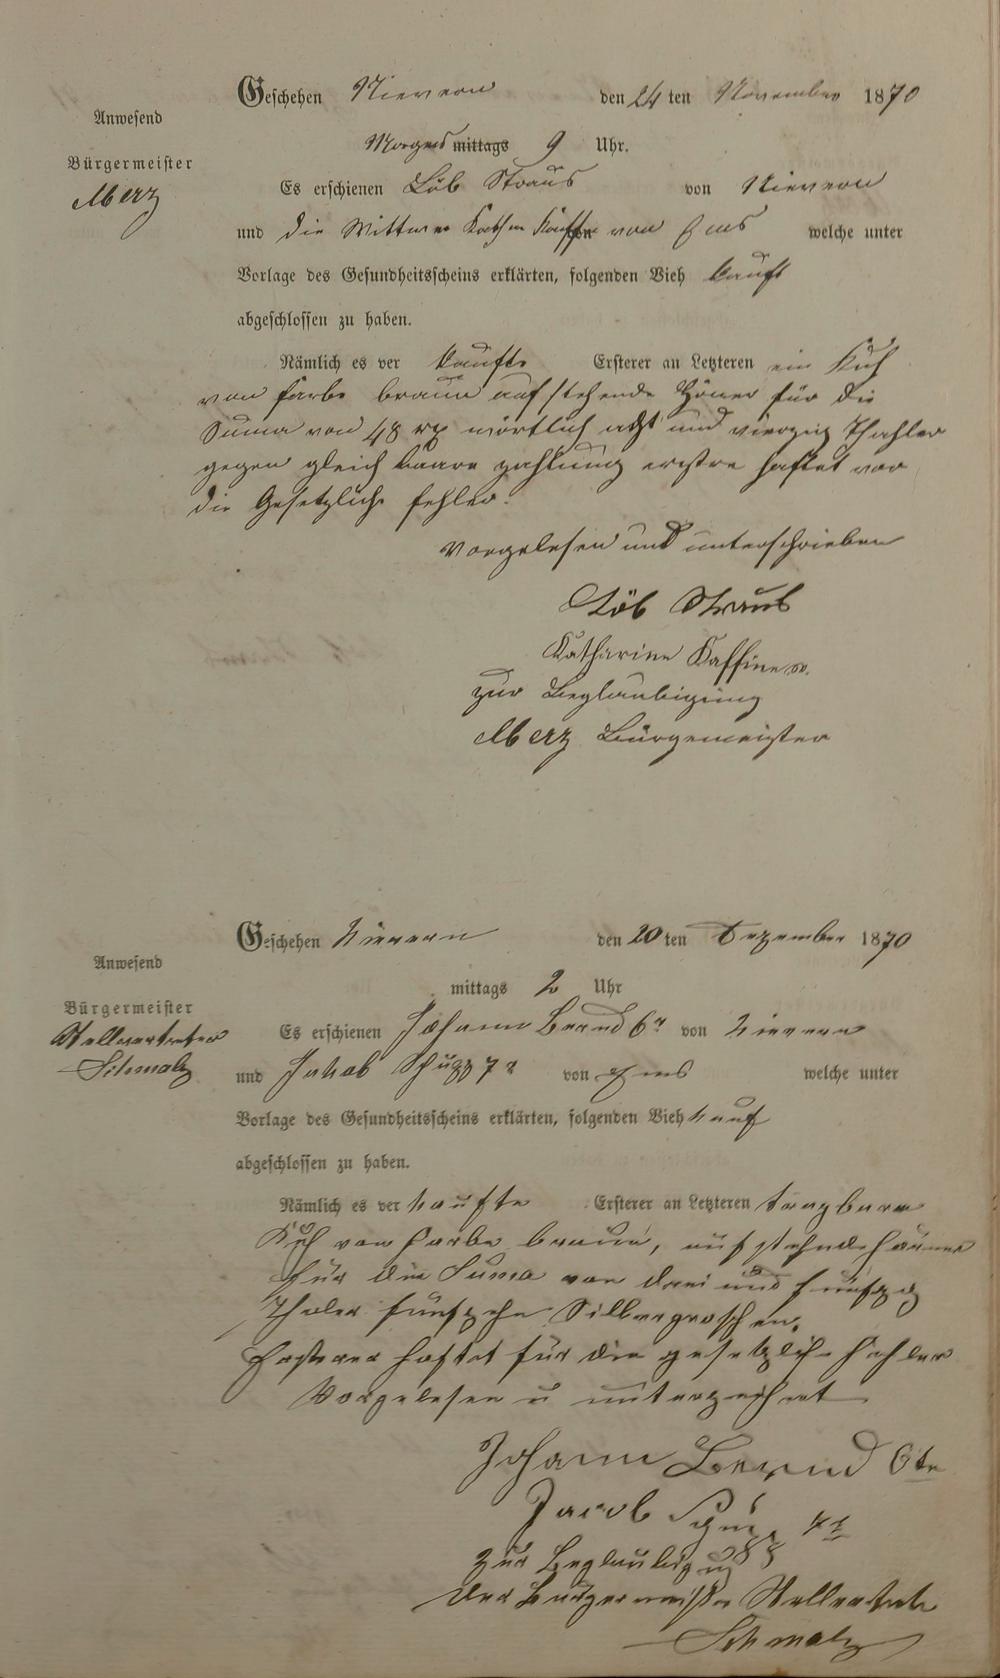 Geschehen Nievern den 24 ten November 1870
Anwesend
Morgens mittags 9 Uhr.
Bürgermeister
Merz
Es erschienen Löb Straus von Nievern
und die Wittwe Kathr von Ems welche unter
Vorlage des Gesundheitsscheins erklärten, folgenden Vieh kauft
abgeschlossen zu haben.
Nämlich es ver kaufte Ersterer an Letzteren ein Kuh
von farbe braun auf stehende Höner für die
Suma von 48 rx wörtlich acht und vierzig Thahler
gegen gleich baare zahlung erstre haftet vor
die Gesetzliche fehler.
Vorgelesen und unterschrieben
Löb Straus
Katharine Kaffine
zur Beglaubigung
Merz Bürgemeister
Geschehen Nievern den 20 ten Dezember 1870
Anwesend
mittags 2 Uhr
Bürgermeister
Stellvertreter
Schmalz
Es erschienen Johann Bernd 6r von Nievern
und Jakob 7r von Ems welche unter
Vorlage des Gesundheitsscheins erklärten, folgenden Vieh kauf
abgeschlossen zu haben.
Nämlich es ver kaufte Ersterer an Letzteren tragbare
Kuh von Farbe braun, auf stehnde Hörner
für die Suma von drei und fünfzig
Thaler fünfzehn Silbergroschen.
Ersterer haftet für die gesetzliche Fehler
Vorgelesen u unterzeichnet
Johann Bernd 6te
Jacob
zur Beglaubigung
der Bürgermeister Stellvertreter
Schmalz